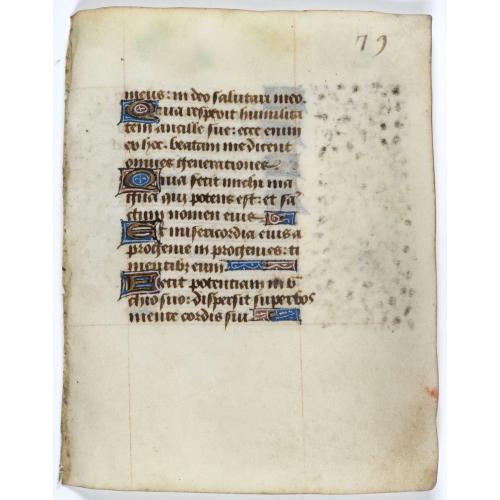 79
meus: in deo salutari meo.
Quia respexit humilita
tem ancille sue: ecce enim
ex hoc beatam me dicent
omnes generationes.
Quia fecit michi ma
gna qui potens est: et sa
ctum nomen eius.
Et misericordia eius a
progenie in progenies: ti
mentibz eum
Fecit potentiam in b
chio suo: dispersit superbos
mente cordis sui.